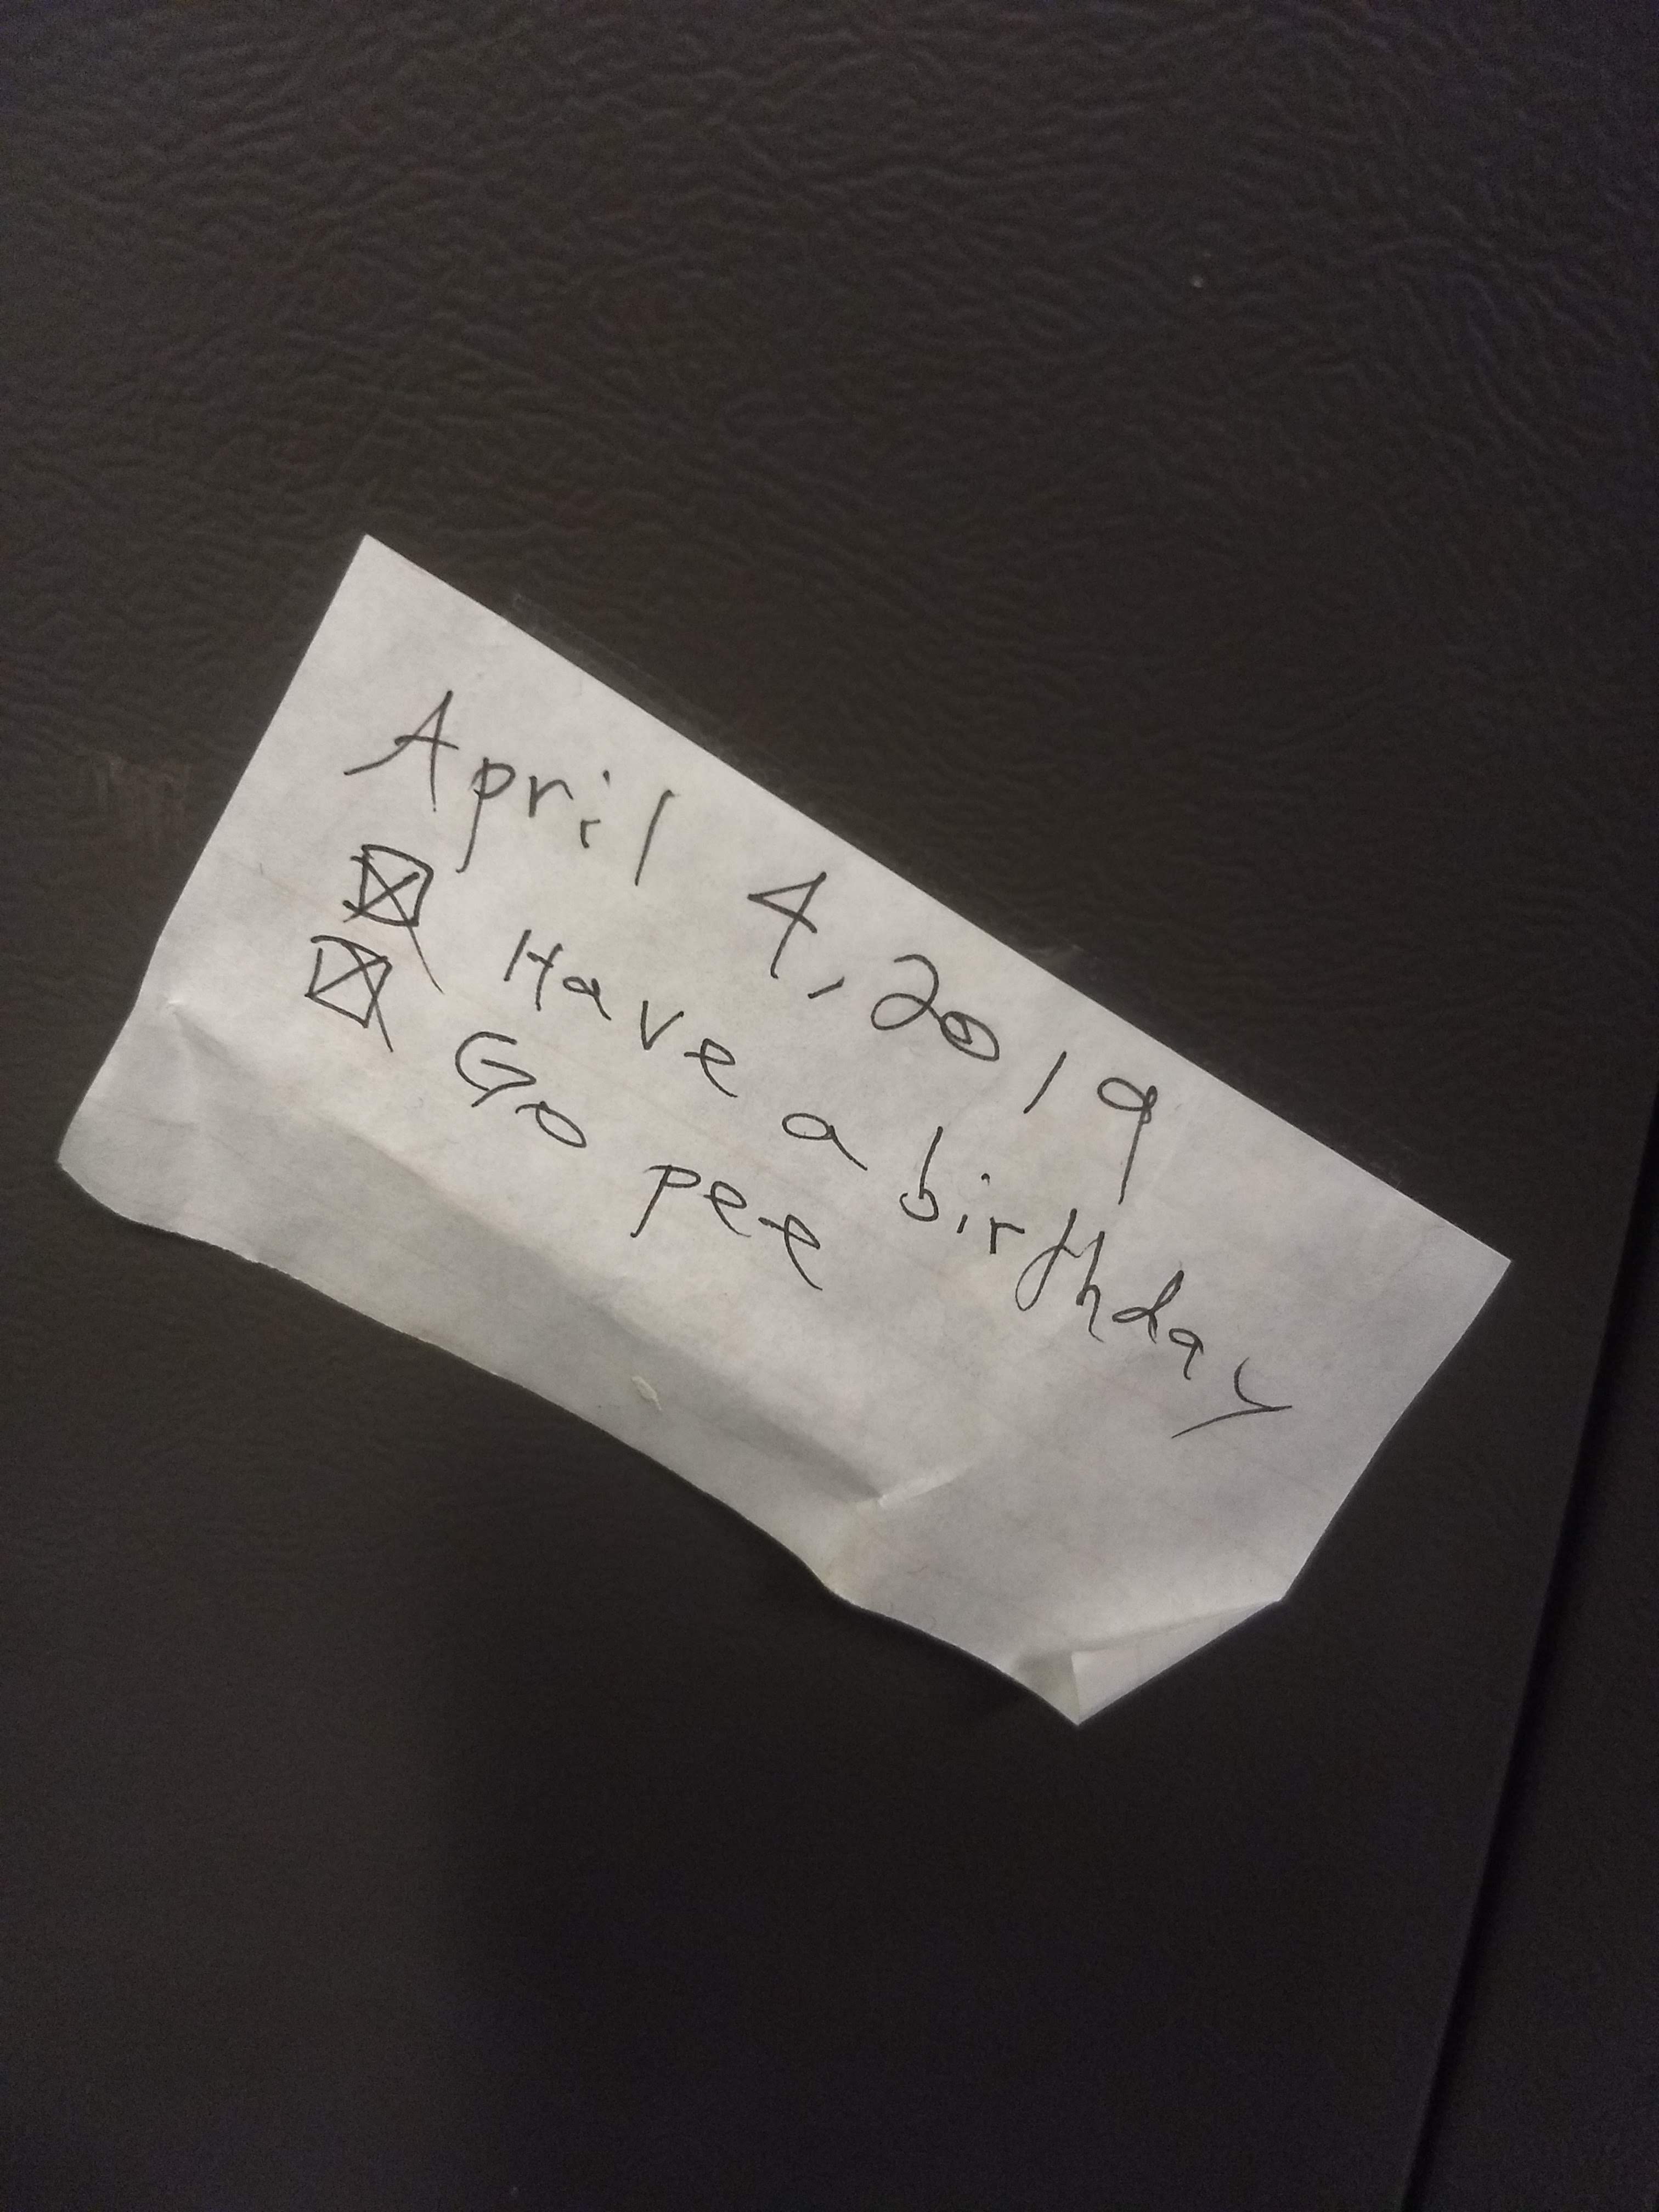 April 4, 2019
☒ Have a birthday
☒ Go pee